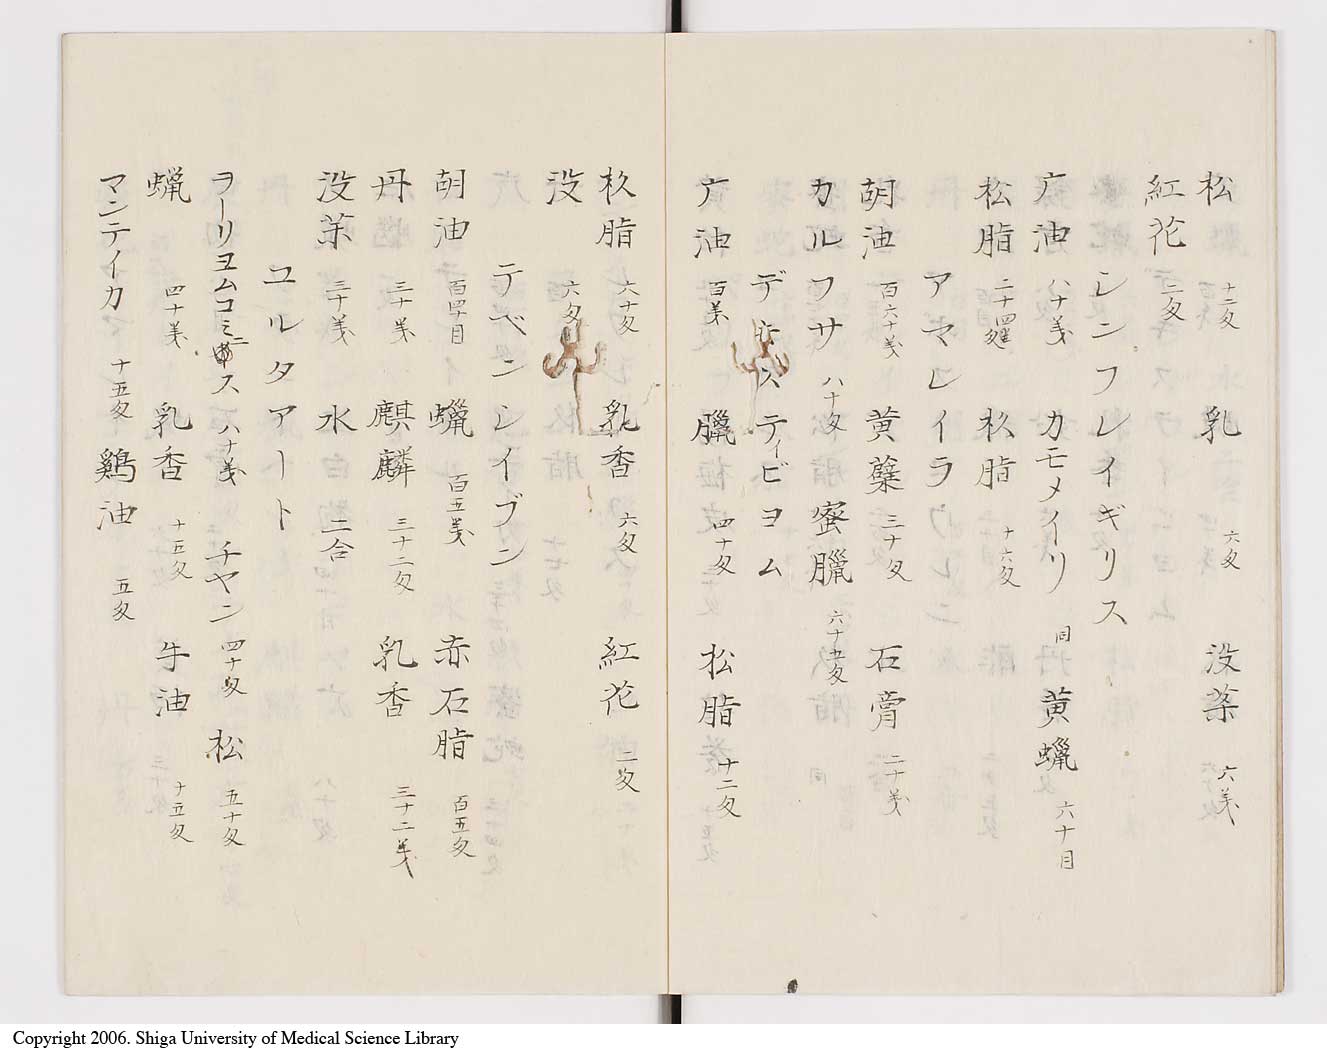 松 十二匁 乳 六匁 没薬 六戔
紅花 二匁
シンフレイギリス
广油 八十戔 カモメイリ 同 黄蠟 六十目
松脂 二十四匁 杦脂 十六匁
アマレイラウレン
胡油 百六十戔 黄蘗 三十匁 石膏 二十戔
カルフサ 八十匁 蜜臘 六十五匁
デ スティビヨム
广油 百戔 臘 四十匁 松脂 十二匁
杦脂 六十匁 乳香 六匁 紅花 二匁
没 六匁
テベンシイブン
胡油 百四十目 蠟 百五戔 赤石脂 百五匁
丹 三十戔 麒麟 三十二匁 乳香 三十二戔
没薬 三十戔 水 二合
ユルタアート
ヲーリヨムコミニス 八十戔 チヤン 四十匁 松 五十匁
蠟 四十戔 乳香 十五匁 牛油 十五匁
マンテイカ 十五匁 鷄油 五匁
Copyright 2006. Shiga University of Medical Science Library